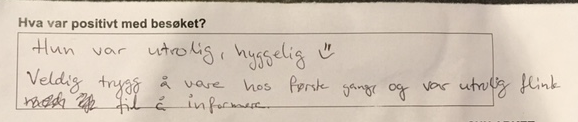 Hva var positivt med besøket?
Hun var utrolig, hyggelig ☺
Veldig trygg å være hos første gang, og var utrolig flink
til å informere.